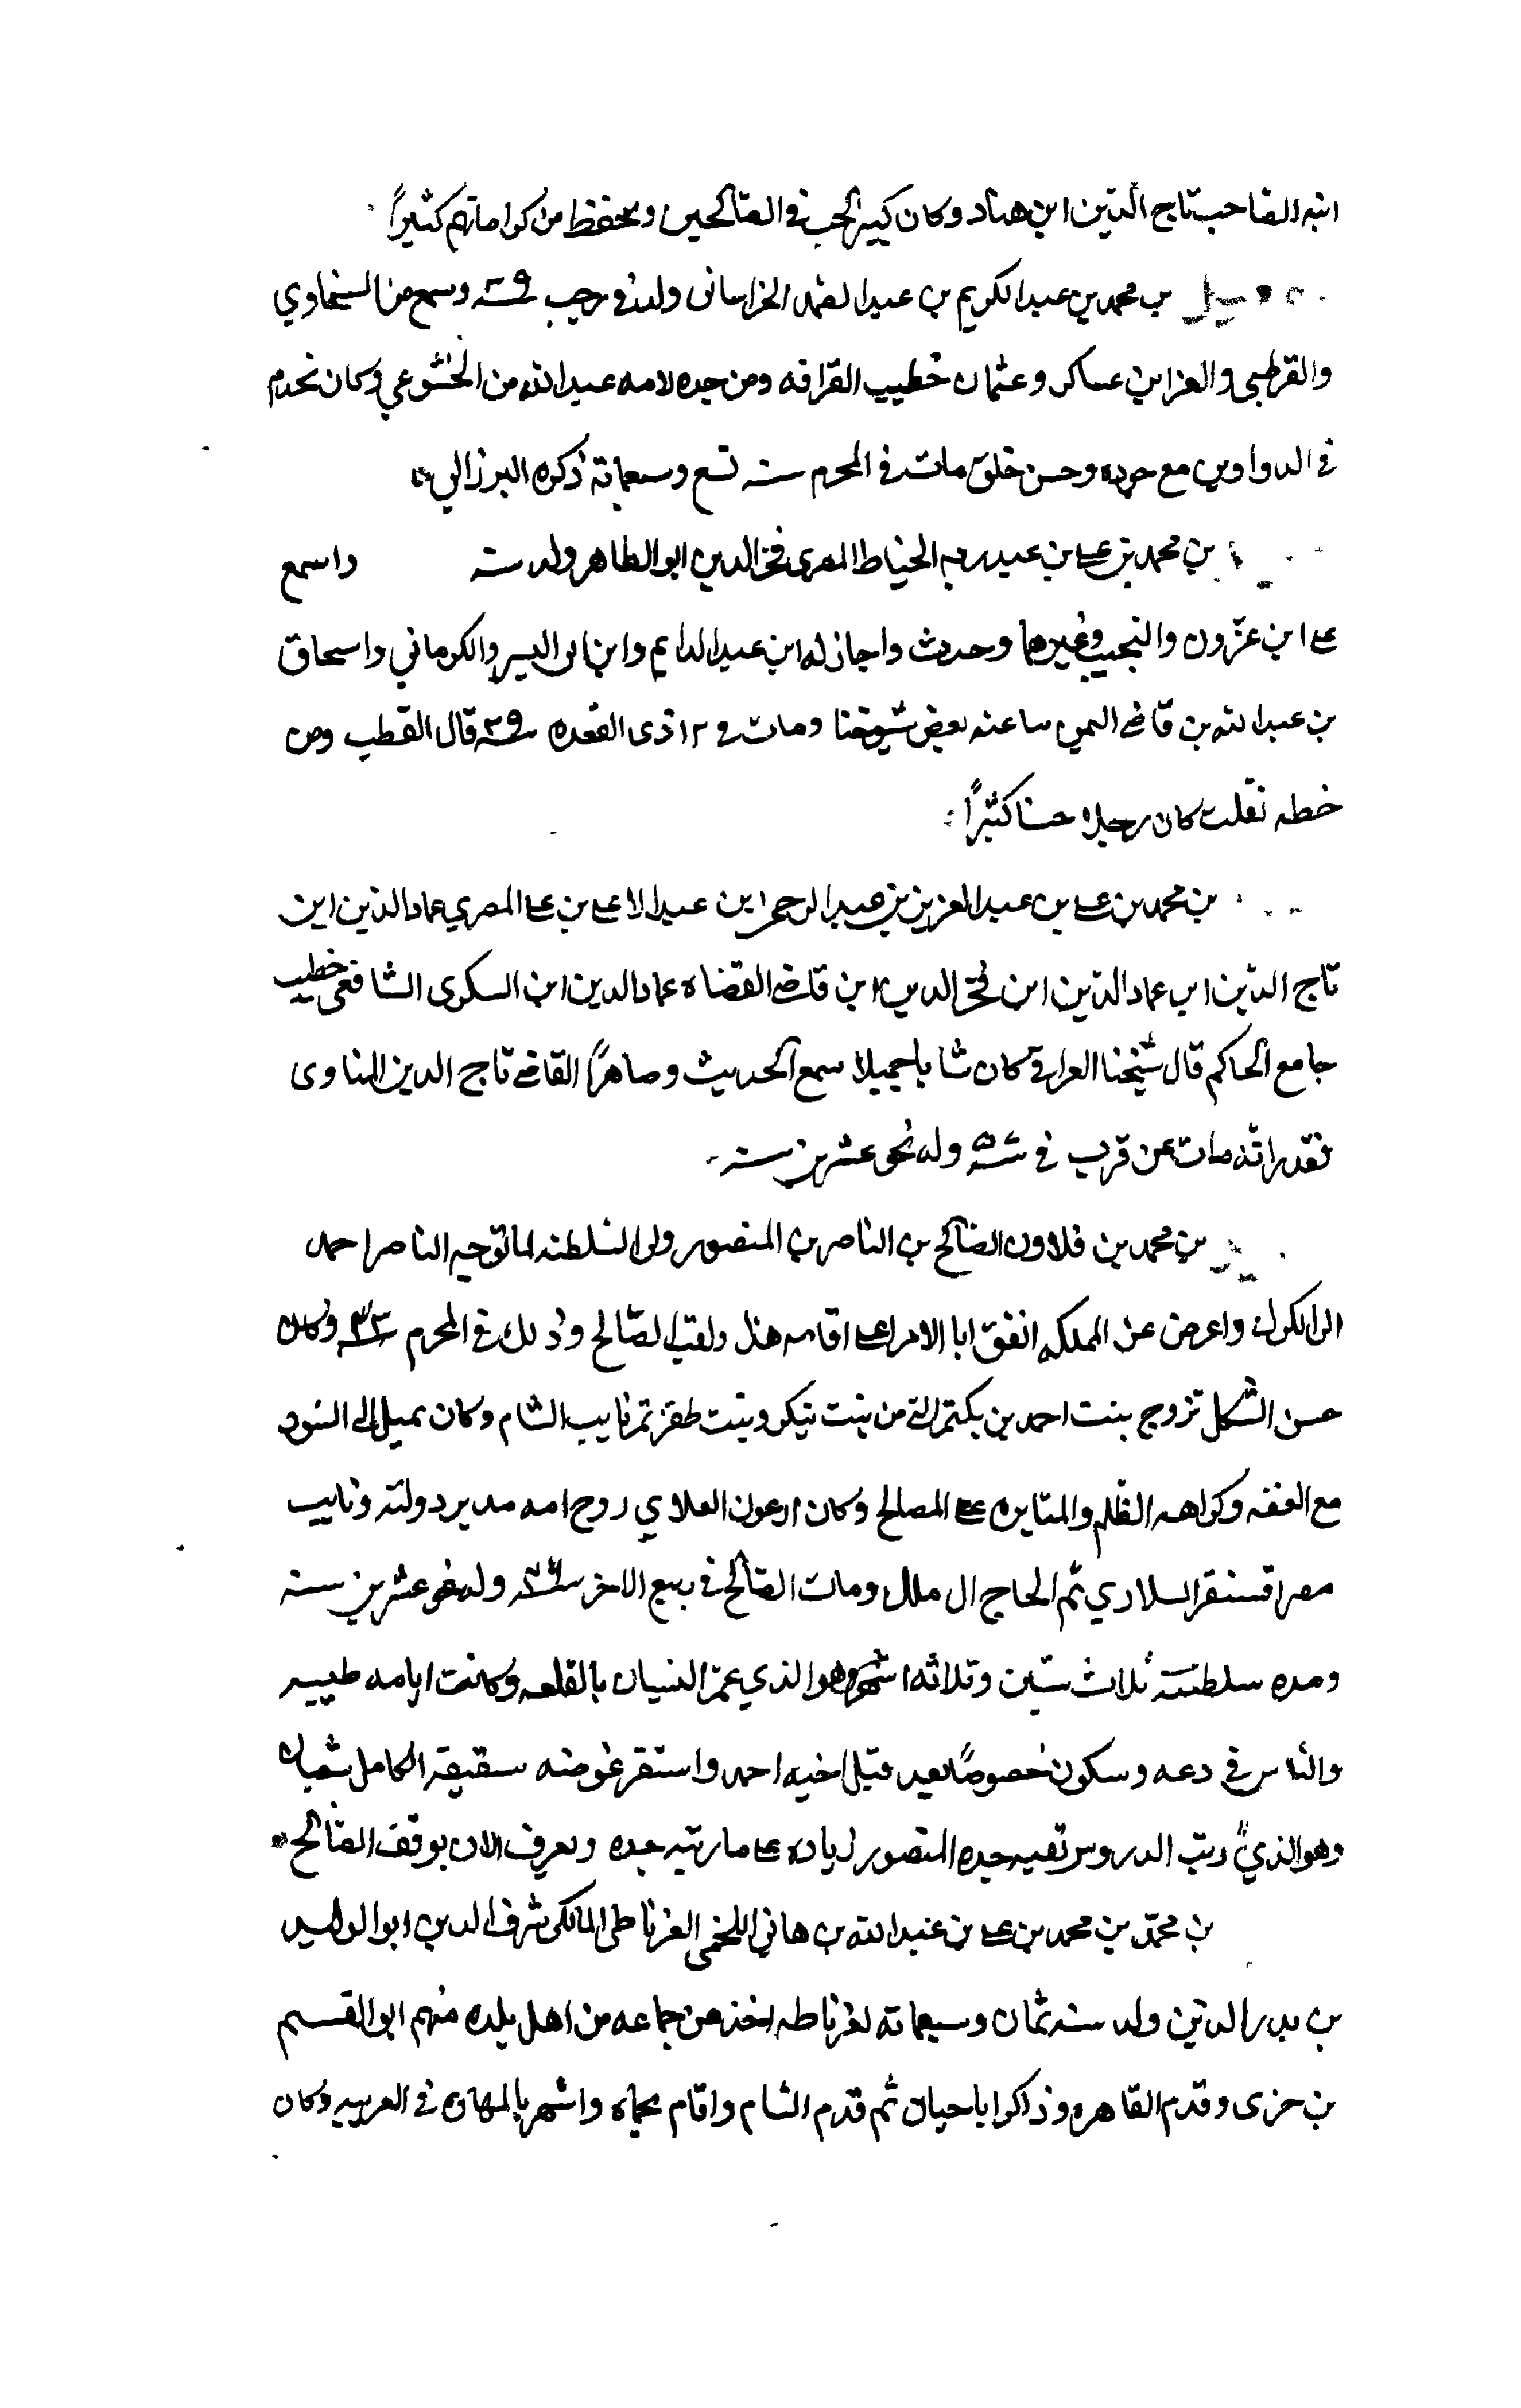 ابنه الصاحب تاج الدين ابن هناد وكان كثير الحب في الصالحين ويحفظ من كراماتهم كثيراً
بن محمد بن عبد الكريم بن عبد الصمد الخراساني ولد في رجب وسمع من السخاوي
والقرطبي والعز ابن عساكر وعثمان خطيب القرافه ومن جده لامه عبد الله من الخشوعي وكان يخدم
في الدواوين مع جوده وحسن خلق مات في المحرم سنه تسع وسبعمائة ذكره البرزالي
بن محمد بن علي بن عبد ربه الخياط المصري فخر الدين ابو الطاهر ولد سنه واسمع
على ابن عزون والنجيب وغيرها وحدث واجاز له ابن عبد الدايم وابن ابى اليسر والكرماني واسحاق
بن عبد الله بن قاضي اليمن سا عنه بعض شيوخنا ومات في ١٢ ذى القعده قال القطب ومن
خطه نقلت كان رجلا حسنا كثيراً
بن محمد بن علي بن عبد العزيز بن عبد الرحمن ابن عبد الاعلى بن على المصري عماد الدين ابن
تاج الدين ابن عماد الدين ابن فخر الدين ابن قاضي القضاه عماد الدين ابن السكرى الشافعي خطيب
جامع الحاكم قال شيخنا العراقي كان شابا جميلا سمع الحديث وصاهر القاضي تاج الدين المناوى
فقدر انه مات عن قرب في وله نحو عشرين سنه
بن محمد بن قلاون الصالح بن الناصر بن المنصور ولى السلطنه لما توجه الناصر احمد
الى الكرك واعرض عن المملكه اتفق ابا الامرا على اقامه هذا ولقب الصالح وذلك في المحرم وكان
حسن الشكل تزوج بنت احمد بن بكتمر التي من بنت تنكز وبنت طقزتمر نايب الشام وكان يميل الى السود
مع العفه وكراهه الظلم والمثابره على المصالح وكان ارغون العلاوي زوج امه مدبر دولته ونايب
مصر اقسنقر السلاري ثم الحاج ال ملك ومات الصالح في ربيع الاخر وله نحو عشرين سنه
ومده سلطنته ثلاث سنين وثلاثه اشهر وهو الذي عمر البستان بالقلعه وكانت ايامه طيبه
والناس في دعه وسكون خصوصاً بعد قتل اخيه احمد واستقر عوضه شقيقه الكامل شعبان
وهو الذي رتب الدروس بقبه جده المنصور زياده على ما رتبه جده وتعرف الان بوقف الصالح
بن محمد بن محمد بن علي بن عبد الله بن هاني اللخمي الغرناطي المالكي شرف الدين ابو الوليد
بن بدر الدين ولد سنه ثمان وسبعمائة بغرناطه اخذ عن جماعه من اهل بلده منهم ابو القسم
بن جزى وقدم القاهره وذاكر ابا حيان ثم قدم الشام واقام بحماه واشتهر بالمهاره في العربيه وكان